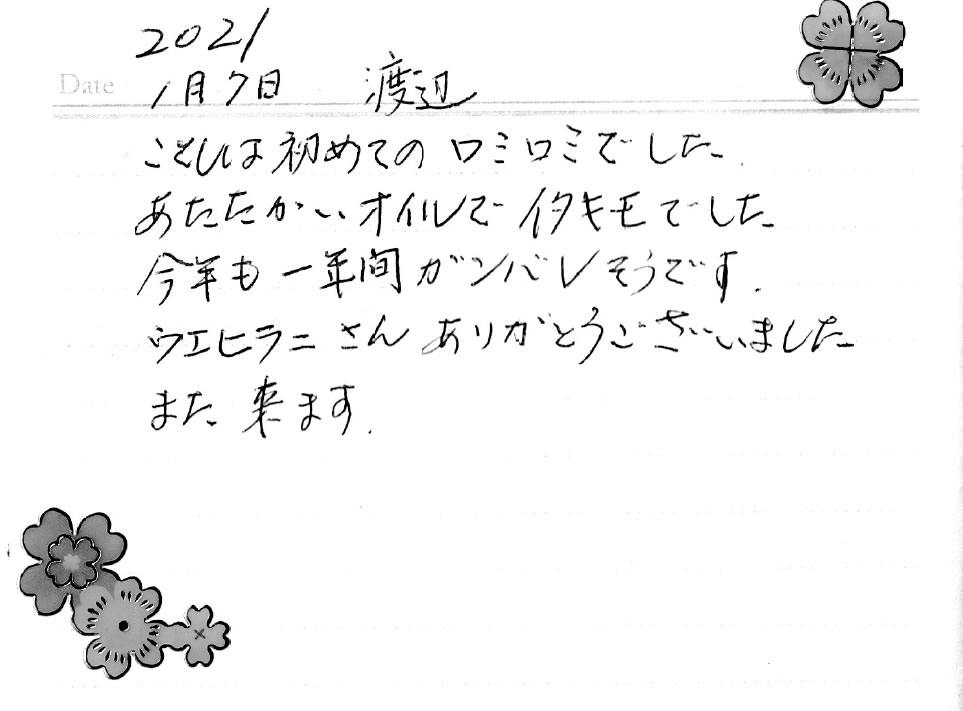 2021
Date 1月7日 渡辺
ことしは初めてのロミロミでした.
あたたかいオイルでイタキモでした
今年も一年間ガンバレそうです.
ウエヒラニさんありがとうございました
また来ます.